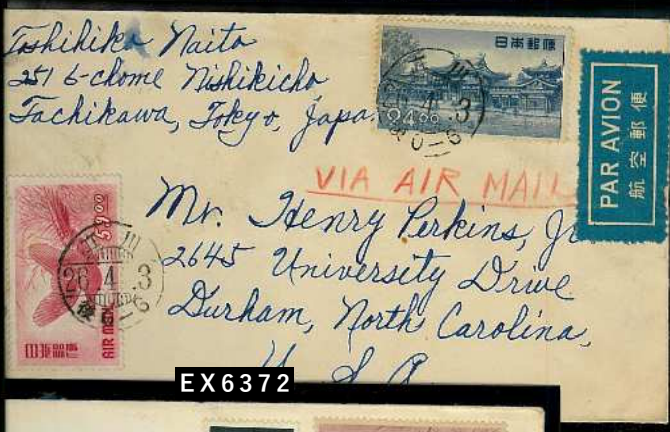 Toshihiko Naito
251 6-chome Nishikicho
Tachikawa, Tokyo, Japa.
日本郵便
24.00
立川
26.4.3
后0-6
PAR AVION
航空郵便
VIA AIR MAIL
Mr. Henry Perkins, Jr
2645 University Drive
Durham, North Carolina,
U S A
59.00
立川
26.4.3
後0-6
AIR MAIL
日本郵便
EX6372